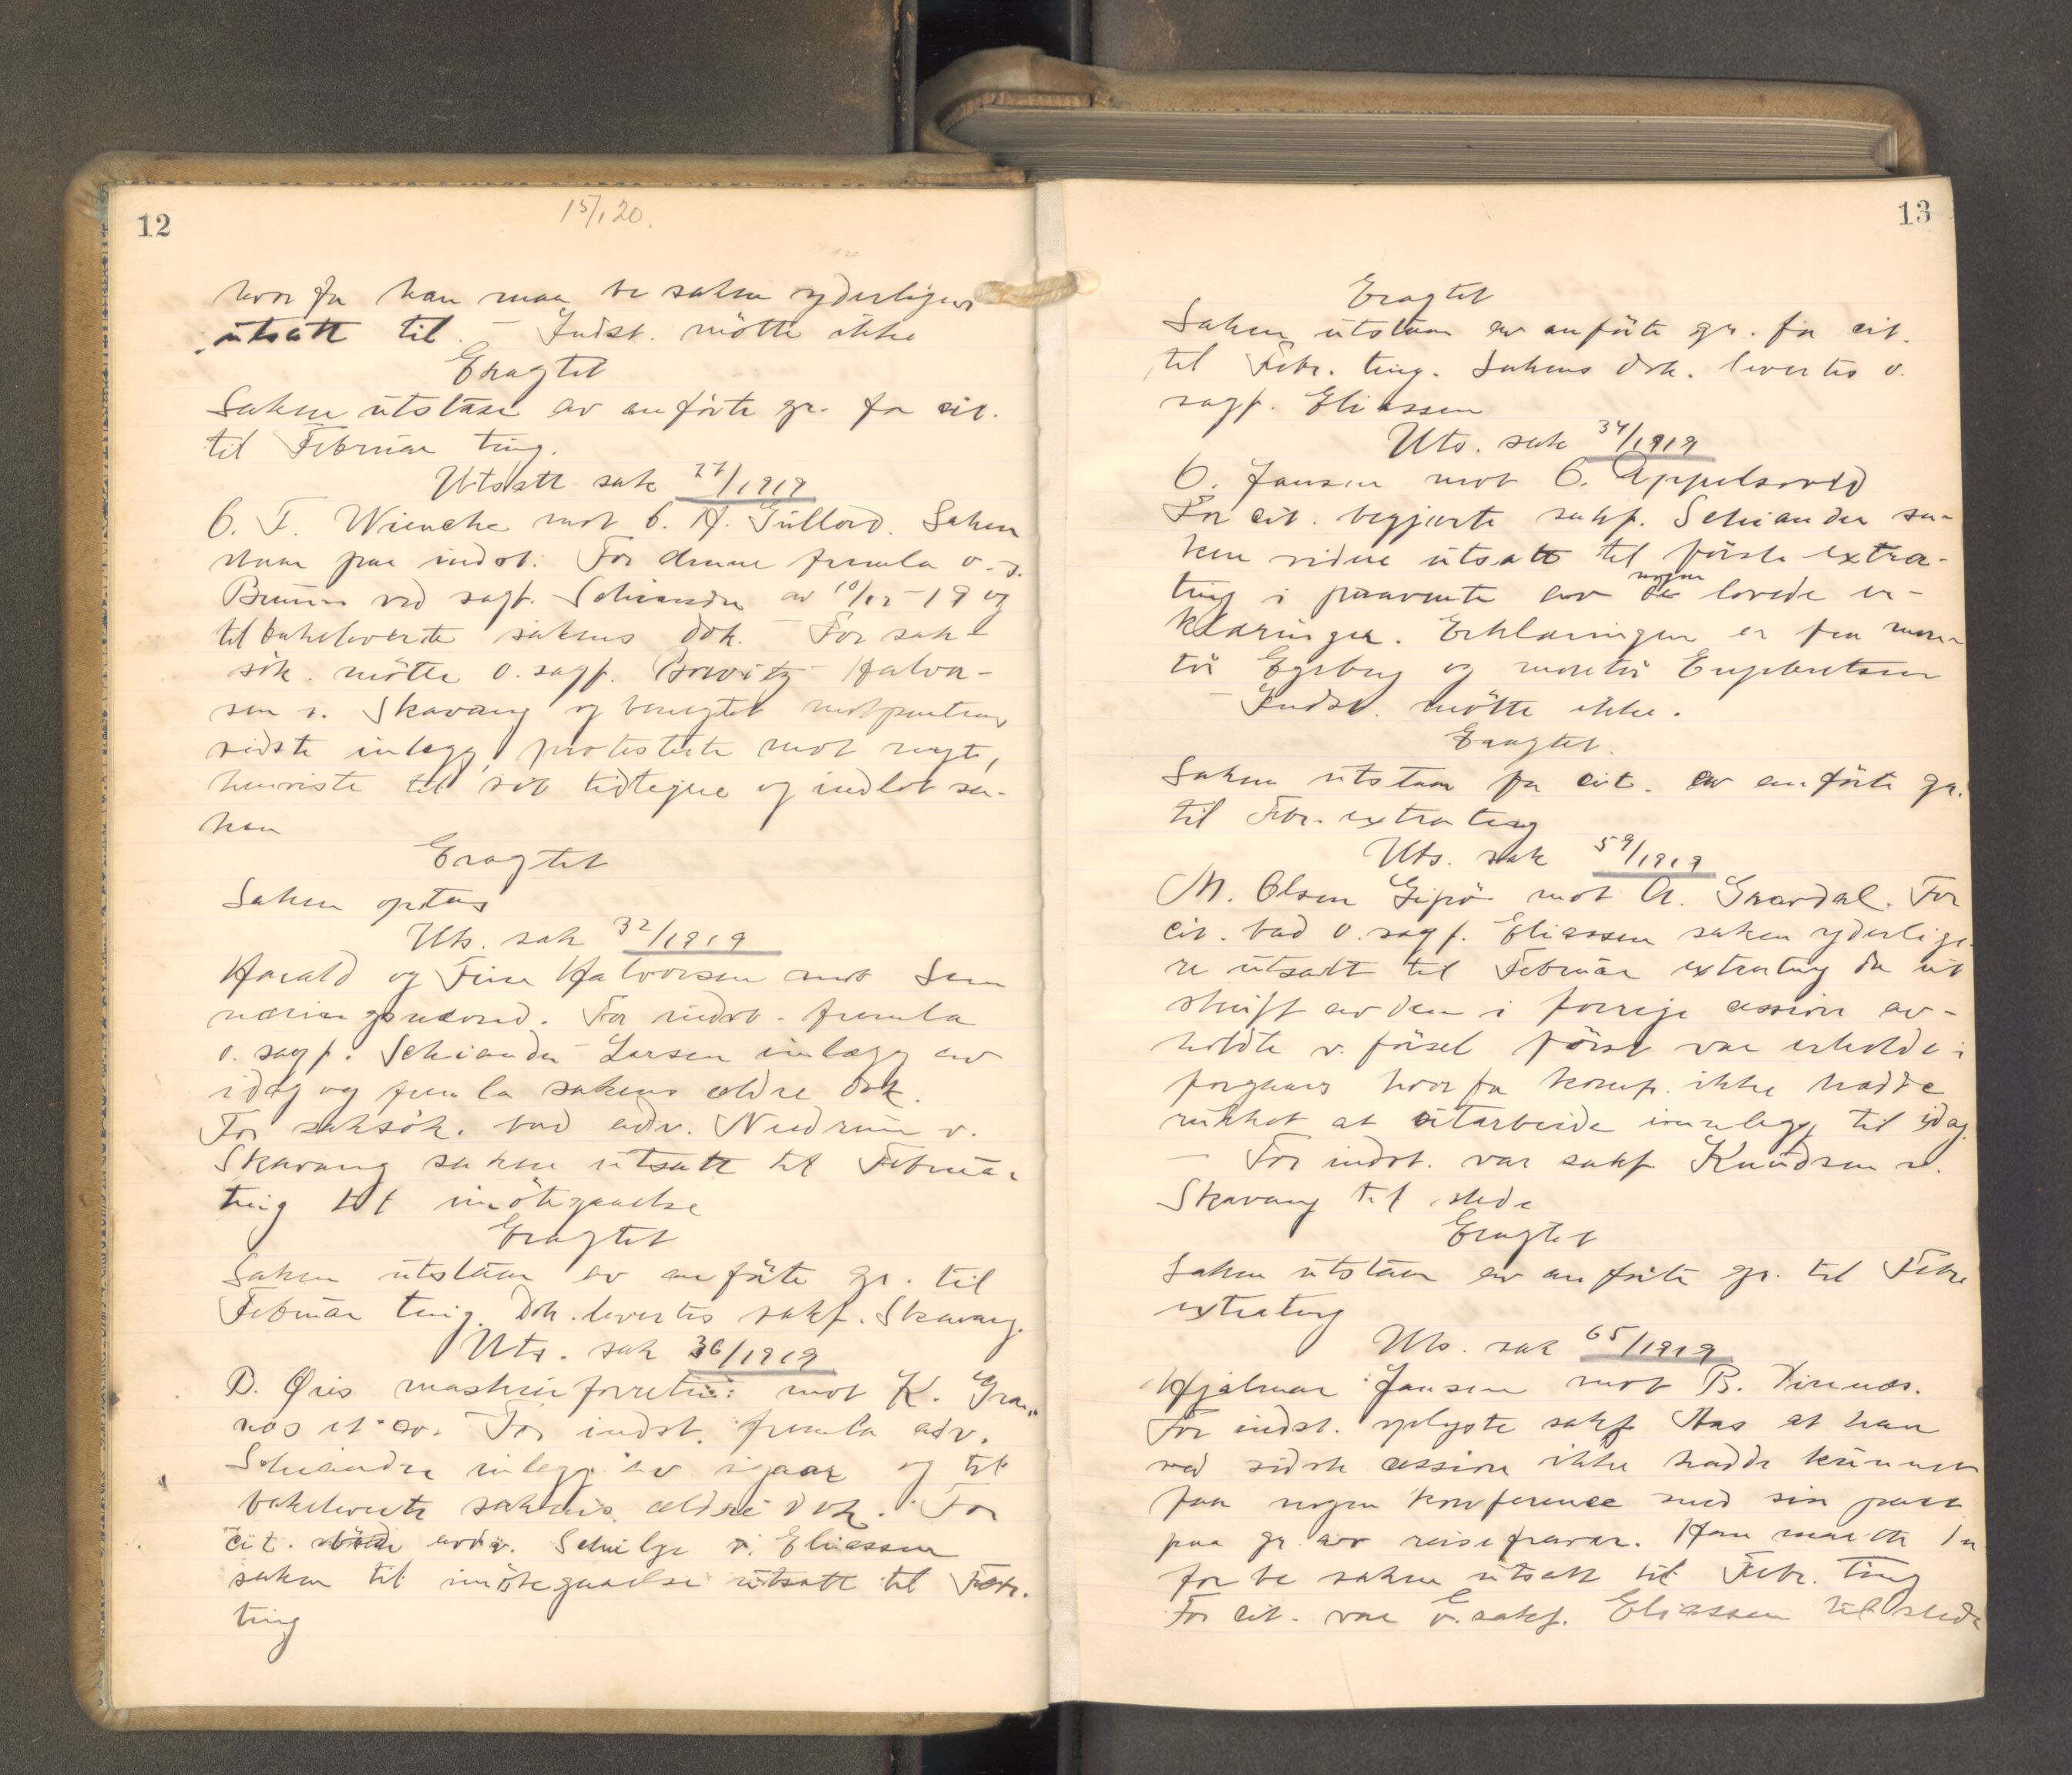 12
15/1 20.
hvorfor han maa be saken yderligere
utsatt til. – Indst. mötte ikke
Eragtet
Saken utstaar av anförte gr. for cit.
til Februar ting.
Utsatt sak 27/1919
C. F. Wiencke mot C. A. Gullord. Saken
staar paa indst. For denne fremla o. s.
ved sagf. Schiander av 10/12 – 19 og
tilbakeleverte sakens dok. – For sak-
sök. mötte o. sagf. Borwitz Halvor-
sen v. Skavang og benegtet motpartens
sidste inlegg, protesterte mot nyt,
henviste til sit tidligere og indlot sa-
ken
Eragtet
Saken optas
Uts. sak 32/1919
Harald og Fine Halvorsen mot Sem
næringsnævnd. For indst. fremla
o. sagf. Schiander Larsen inlægg av
idag og fremla sakens ældre dok.
For saksök. bad adv. Nedrum v.
Skavang saken utsatt til Februar
ting til imötegaaelse
Eragtet
Saken utstaar av anförte gr. til
Februar ting. Dok. levertes sakf. Skavang.
Uts. sak 36/1919
D. Øies maskinforretn: mot K. Gran-
nos et co. For indst. fremla adv.
Schiander inlegg av igaar og til
bakeleverte sakens ældre dok. For
cit. adv. v. Eliassen
saken til imötegaaelse utsatt til Febr.
ting
13
Eragtet
Saken utstaar av anförte gr. for cit.
til Febr. ting. Sakens dok. levertes o.
sagf. Eliassen
Uts. sak 34/1919
C. Jansen mot C. Appelsvold
For cit. begjærte sakf. Schiander sa-
ken videre utsatt til förste extra-
ting i paavente av nogen lovede er-
klæringer. Erklæringen er fra mon-
tör Egeberg og montör Engebretsen
– Indst. mötte ikke.
Eragtet.
Saken utstaar for cit. av anförte gr.
til Febr. extrating
Uts. sak 59/1919
M. Olsen Gipö mot A. Graardal. For
cit. bad o. sagf. Eliassen saken yderlige-
re utsatt til Februar extrating da ut
skrift av den i forrige session av-
holdte v. försel först var erholdt i
forgaars hvorfor komp. ikke hadde
rukket at utarbeide innlegg til idag.
– For indst. var sakf. Knudsen v.
Skavang til stede
Eragtet
Saken utstaar av anförte gr. til Febr.
extrating
Uts. sak 65/1919
Hjalmar Jansen mot B.
For indst. oplyste sakf. Aas at han
ved sidste session ikke hadde kunnet
faa nogen konference med sin part
paa gr. av reisefravær. Han maatte der
for be saken utsatt til Febr. ting
For cit. var o. sakf. Eliassen tilstede